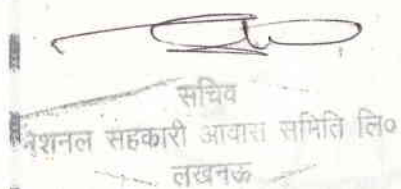 सचिव
नेशनल सहकारी आवास समिति लि०
लखनऊ